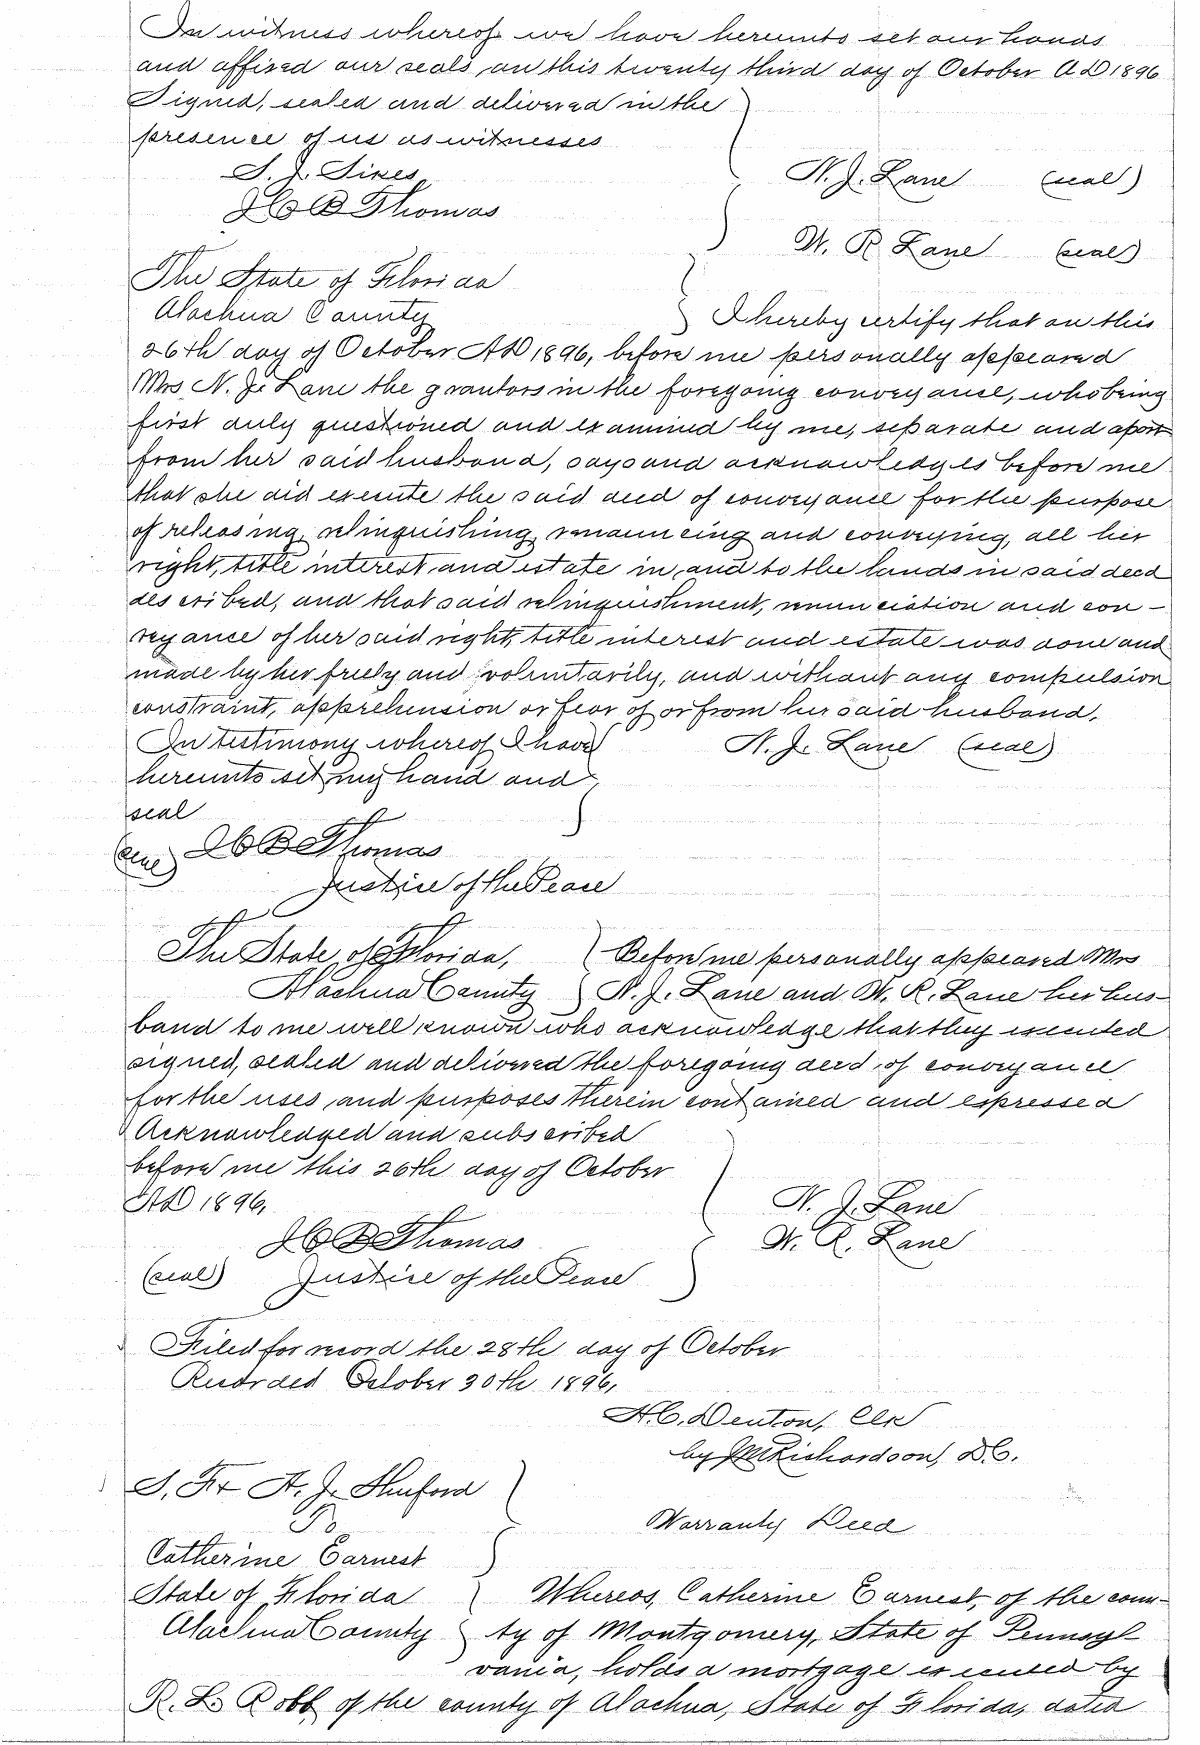 In witness whereof we have hereunto set our hands
and affixed our seals on this twenty third day of October AD 1896
Signed, sealed and delivered in the
presence of us as witnesses
S. J. Sikes
H B Thomas
N. J. Lane (seal)
W. R. Lane (seal)
The State of Florida
Alachua County
I hereby certify that on this
26th day of October AD 1896, before me personally appeared
Mrs N. J. Lane the grantors in the foregoing conveyance, who being
first duly questioned and examined by me, separate and apart
from her said husband, says and acknowledges before me
that she did execute the said deed of conveyance for the purpose
of releasing, relinquishing, renouncing and conveying, all her
right, title interest and estate in and to the lands in said deed
described, and that said relinquishment, renunciation and con-
veyance of her said right, title interest and estate was done and
made by her freely and voluntarily, and without any compulsion
constraint, apprehension or fear of or from her said husband.
In testimony whereof I have
hereunto set my hand and
seal
N. J. Lane (seal)
(seal) H B Thomas
Justice of the Peace
The State of Florida,
Alachua County
Before me personally appeared Mrs
N. J. Lane and W. R. Lane her hus-
band to me well known who acknowledge that they executed
signed, sealed and delivered the foregoing deed of conveyance
for the uses and purposes therein contained and expressed
Acknowledged and subscribed
before me this 26th day of October
AD 1896,
N. J. Lane
W. R. Lane
H B Thomas
(seal) Justice of the Peace
Filed for record the 28th day of October
Recorded October 30th 1896,
H. C. Denton, Clk
by Richardson, D.C.
S. F. + A. J. Shuford
To
Catherine Earnest
Warranty Deed
State of Florida
Alachua County
Whereas, Catherine Earnest, of the coun-
ty of Montgomery, State of Pennsyl-
vania, holds a mortgage executed by
R. L. Robb of the county of Alachua, State of Florida, dated